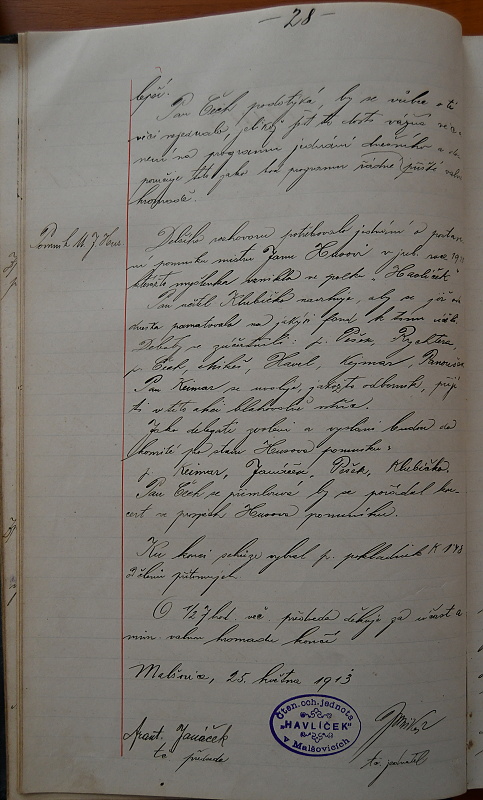 - 28 -
lepší.
Pan Čech podotýká, by se vůbec o té
věci nejednalo, jelikož jest to dosti vážné a
není na programu jednání dnešního a
poručuje toto jako bod programu řádné příští valné
hromadě.
Pomník M. J. Husi.
Delšího rozhovoru potřebovalo jednání o postave-
ní pomníku mistru Janu Husovi v jub. roce 191
kterážto myšlenka vznikla ve spolku "Havlíček"
Pan učitel Klubíčko navrhuje, aby se již
pamatovalo na jakýsi fond k tomu účeli.
Debaty se zúčastnili: p. Pešek, Rychtera,
p. Čech, Havel, Kejmar, Panoušek
Pan Keimar se uvoluje, jakožto odborník, přijí-
ti v této akci blahovolně
Jako delegáti zvoleni a vysláni budou do
komité pro stavbu Husova pomníku:
p. Keimar, Janáček, Pešek, Klubíčko.
Pan Čech se přimlouvá by se pořádal kon-
cert ve prospěch Husova pomníku.
Ku konci schůze vybral p. pokladník K
členů přítomných.
O 1/2 7 hod. več. předseda děkuje za účast a
valnou hromadu končí
Malšovice, 25. května 1913
Čten. och. jednota
"HAVLÍČEK"
v Malšovicích
Frant. Janáček
t. č. předseda
t. č. jednatel